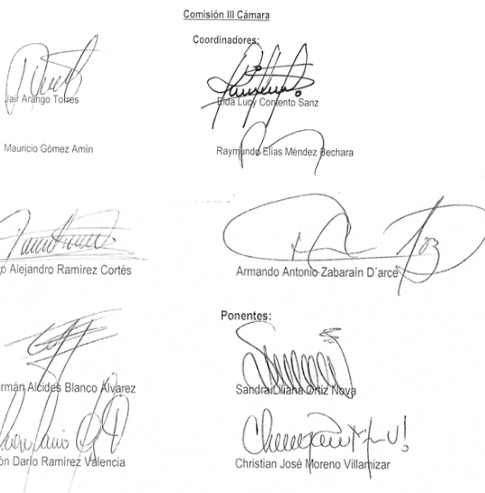 Comisión III Cámara
Coordinadores:
Jair Arango Torres
Elda Lucy Contento Sanz
Mauricio Gómez Amin
Raymundo Elías Méndez Bechara
o Alejandro Ramírez Cortés
Armando Antonio Zabaraín D´arce
Ponentes:
rmán Alcides Blanco Álvarez
Sandra Liliana Ortiz Nova
ón Darío Ramírez Valencia
Christian José Moreno Villamizar